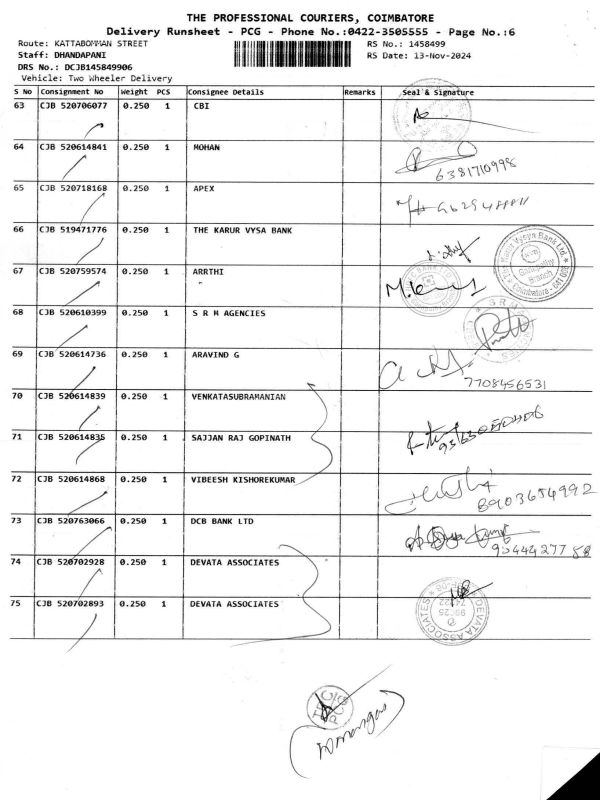 THE PROFESSIONAL COURIERS, COIMBATORE
Delivery Runsheet - PCG - Phone No.:0422-3505555 - Page No.:6
Route: KATTABOMMAN STREET RS No.: 1458499
Staff: DHANDAPANI RS Date: 13-Nov-2024
DRS No.: DCJB145849906
Vehicle: Two Wheeler Delivery
S No Consignment No Weight PCS Consignee Details Remarks Seal & Signature
63 CJB 520706077 0.250 1 CBI
64 CJB 520614841 0.250 1 MOHAN
6381710998
65 CJB 520718168 0.250 1 APEX
66 CJB 519471776 0.250 1 THE KARUR VYSA BANK
Karur Vysya Bank Ltd. Ganapathy Branch Coimbatore
67 CJB 520759574 0.250 1 ARRTHI
68 CJB 520610399 0.250 1 S R M AGENCIES
69 CJB 520614736 0.250 1 ARAVIND G
7708456531
70 CJB 520614839 0.250 1 VENKATASUBRAMANIAN
71 CJB 520614835 0.250 1 SAJJAN RAJ GOPINATH
72 CJB 520614868 0.250 1 VIBEESH KISHOREKUMAR
8903654992
73 CJB 520763066 0.250 1 DCB BANK LTD
9544427758
74 CJB 520702928 0.250 1 DEVATA ASSOCIATES
75 CJB 520702893 0.250 1 DEVATA ASSOCIATES
DEVATA ASSOCIATES
PCG